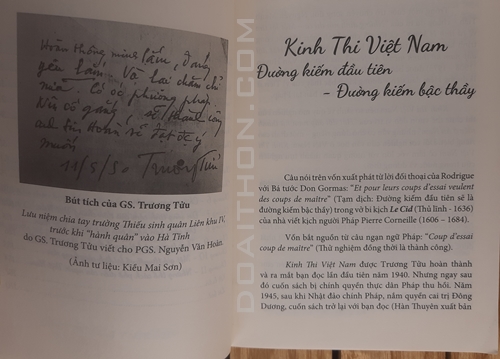 Hoàn thông minh lắm, đáng
yêu lắm. Và lại chăm chỉ
nữa. Có óc phương pháp.
Nếu cố gắng, sẽ thành công
anh tin Hoàn sẽ đạt được ý
muốn
11/5/50 Trương Tửu
Bút tích của GS. Trương Tửu
Lưu niệm chia tay trường Thiếu sinh quân Liên khu IV,
trước khi "hành quân" vào Hà Tĩnh
do GS. Trương Tửu viết cho PGS. Nguyễn Văn Hoàn.
(Ảnh tư liệu: Kiều Mai Sơn)
DOAITHON.COM
Kinh Thi Việt Nam
Đường kiếm đầu tiên
– Đường kiếm bậc thầy
Câu nói trên vốn xuất phát từ lời đối thoại của Rodrigue
với Bá tước Don Gormas: "Et pour leurs coups d'essai veulent
des coups de maître" (Tạm dịch: Đường kiếm đầu tiên sẽ là
đường kiếm bậc thầy) trong vở bi kịch Le Cid (Thủ lĩnh - 1636)
của nhà viết kịch người Pháp Pierre Corneille (1606 – 1684).
Vốn bắt nguồn từ câu ngạn ngữ Pháp: "Coup d'essai
coup de maître" (Thử nghiệm đồng thời là thành công).
Kinh Thi Việt Nam được Trương Tửu hoàn thành
và ra mắt bạn đọc lần đầu tiên năm 1940. Nhưng ngay sau
đó cuốn sách bị chính quyền thực dân Pháp thu hồi. Năm
1945, sau khi Nhật đảo chính Pháp, nắm quyền cai trị Đông
Dương, cuốn sách trở lại với bạn đọc (Hàn Thuyên xuất bản